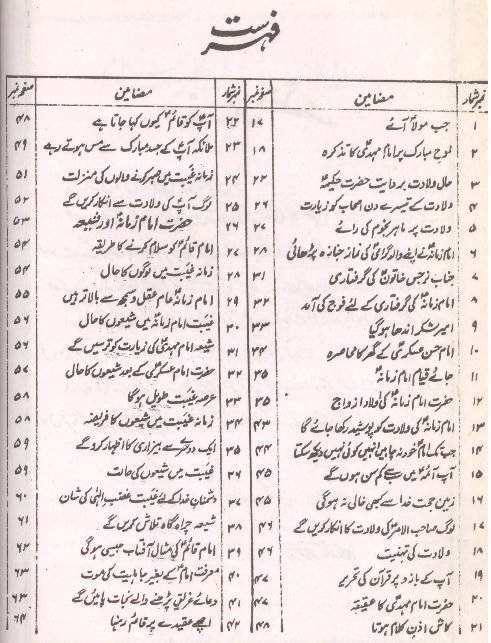 فہرست
نمبر شمار مضامین صفحہ نمبر
۱ جب مولاؑ آئے ۱۷
۲ لوح مبارک پر امام مہدیؑ کا تذکرہ ۱۸
۳ حال ولادت بروایت حضرت حکیمہؑ ۲۲
۴ ولادت کے تیسرے دن اصحاب کو زیارت ۲۶
۵ ولادت پر ماہر نجوم کی رائے ۲۶
۶ امام زمانہؑ نے اپنے والد گرامیؑ کی نماز جنازہ پڑھائی ۲۸
۷ جناب نرجس خاتونؑ کی گرفتاری ۳۱
۸ امام زمانہؑ کی گرفتاری کے لئے فوج کی آمد ۳۲
۹ امیر لشکر اندھا ہو گیا ۳۳
۱۰ امام حسن عسکریؑ کے گھر کا محاصرہ ۳۴
۱۱ جائے قیام امام زمانہؑ ۳۵
۱۲ حضرت امام زمانہؑ کی اولاد ازواج ۳۵
۱۳ امام زمانہؑ کی ولادت کو پوشیدہ رکھا جائے گا ۴۳
۱۴ جب تک امامؑ خود نہ چاہیں انہیں کوئی نہیں دیکھ سکتا ۴۴
۱۵ آپ آئمہؑ میں سب سے کم سن ہوں گے ۴۵
۱۶ زمین حجت خدا سے کبھی خالی نہ ہوگی ۴۵
۱۷ لوگ صاحب الامرؑ کی ولادت کا انکار کریں گے ۴۶
۱۸ ولادت کی تہنیت ۴۶
۱۹ آپ کے بازو پر قرآن کی تحریر ۴۷
۲۰ حضرت امام مہدیؑ کا عقیقہ ۴۷
۲۱ کاش اذن کلام ہوتا ۴۸
نمبر شمار مضامین صفحہ نمبر
۲۲ آپؑ کو قائمؑ کیوں کہا جاتا ہے ۴۸
۲۳ ملائکہ آپؑ کے جسد مبارک سے مس ہوتے رہے ۴۹
۲۴ زمانہ غیبت میں صبر کرنے والوں کی منزلت ۵۱
۲۵ لوگ آپؑ کی ولادت سے انکار کریں گے ۵۲
۲۶ حضرت امام زمانہؑ اور شیعہ ۵۳
۲۷ امام قائمؑ کو سلام کرنے کا طریقہ ۵۴
۲۸ زمانہ غیبت میں لوگوں کا حال ۵۴
۲۹ امام زمانہؑ عام عقل و سمجھ سے بالاتر ہیں ۵۵
۳۰ غیبت امام زمانہؑ میں شیعوں کا حال ۵۶
۳۱ شیعہ امام مہدیؑ کی زیارت کو ترسیں گے ۵۶
۳۲ حضرت امام عسکریؑ کے بعد شیعوں کا حال ۵۷
۳۳ عرصہ غیبت طویل ہوگا ۵۸
۳۴ زمانہ غیبت میں شیعوں کا فریضہ ۵۸
۳۵ ایک دوسرے سے بیزاری کا اظہار کرو گے ۵۹
۳۶ غیبت میں شیعوں کی حالت ۵۹
۳۷ دشمنان خدا کے لئے غیبت غضب الٰہی کی شان ۶۰
۳۸ شیعہ چراگاہ تلاش کریں گے ۶۱
۳۹ امام قائمؑ کی مثال آفتاب جیسی ہوگی ۶۲
۴۰ معرفت امامؑ کے بغیر جاہلیت کی موت ۶۳
۴۱ دعائے غریق پڑھنے والے نجات پائیں گے ۶۳
۴۲ اچھے عقیدے پر قائم رہنا ۶۴